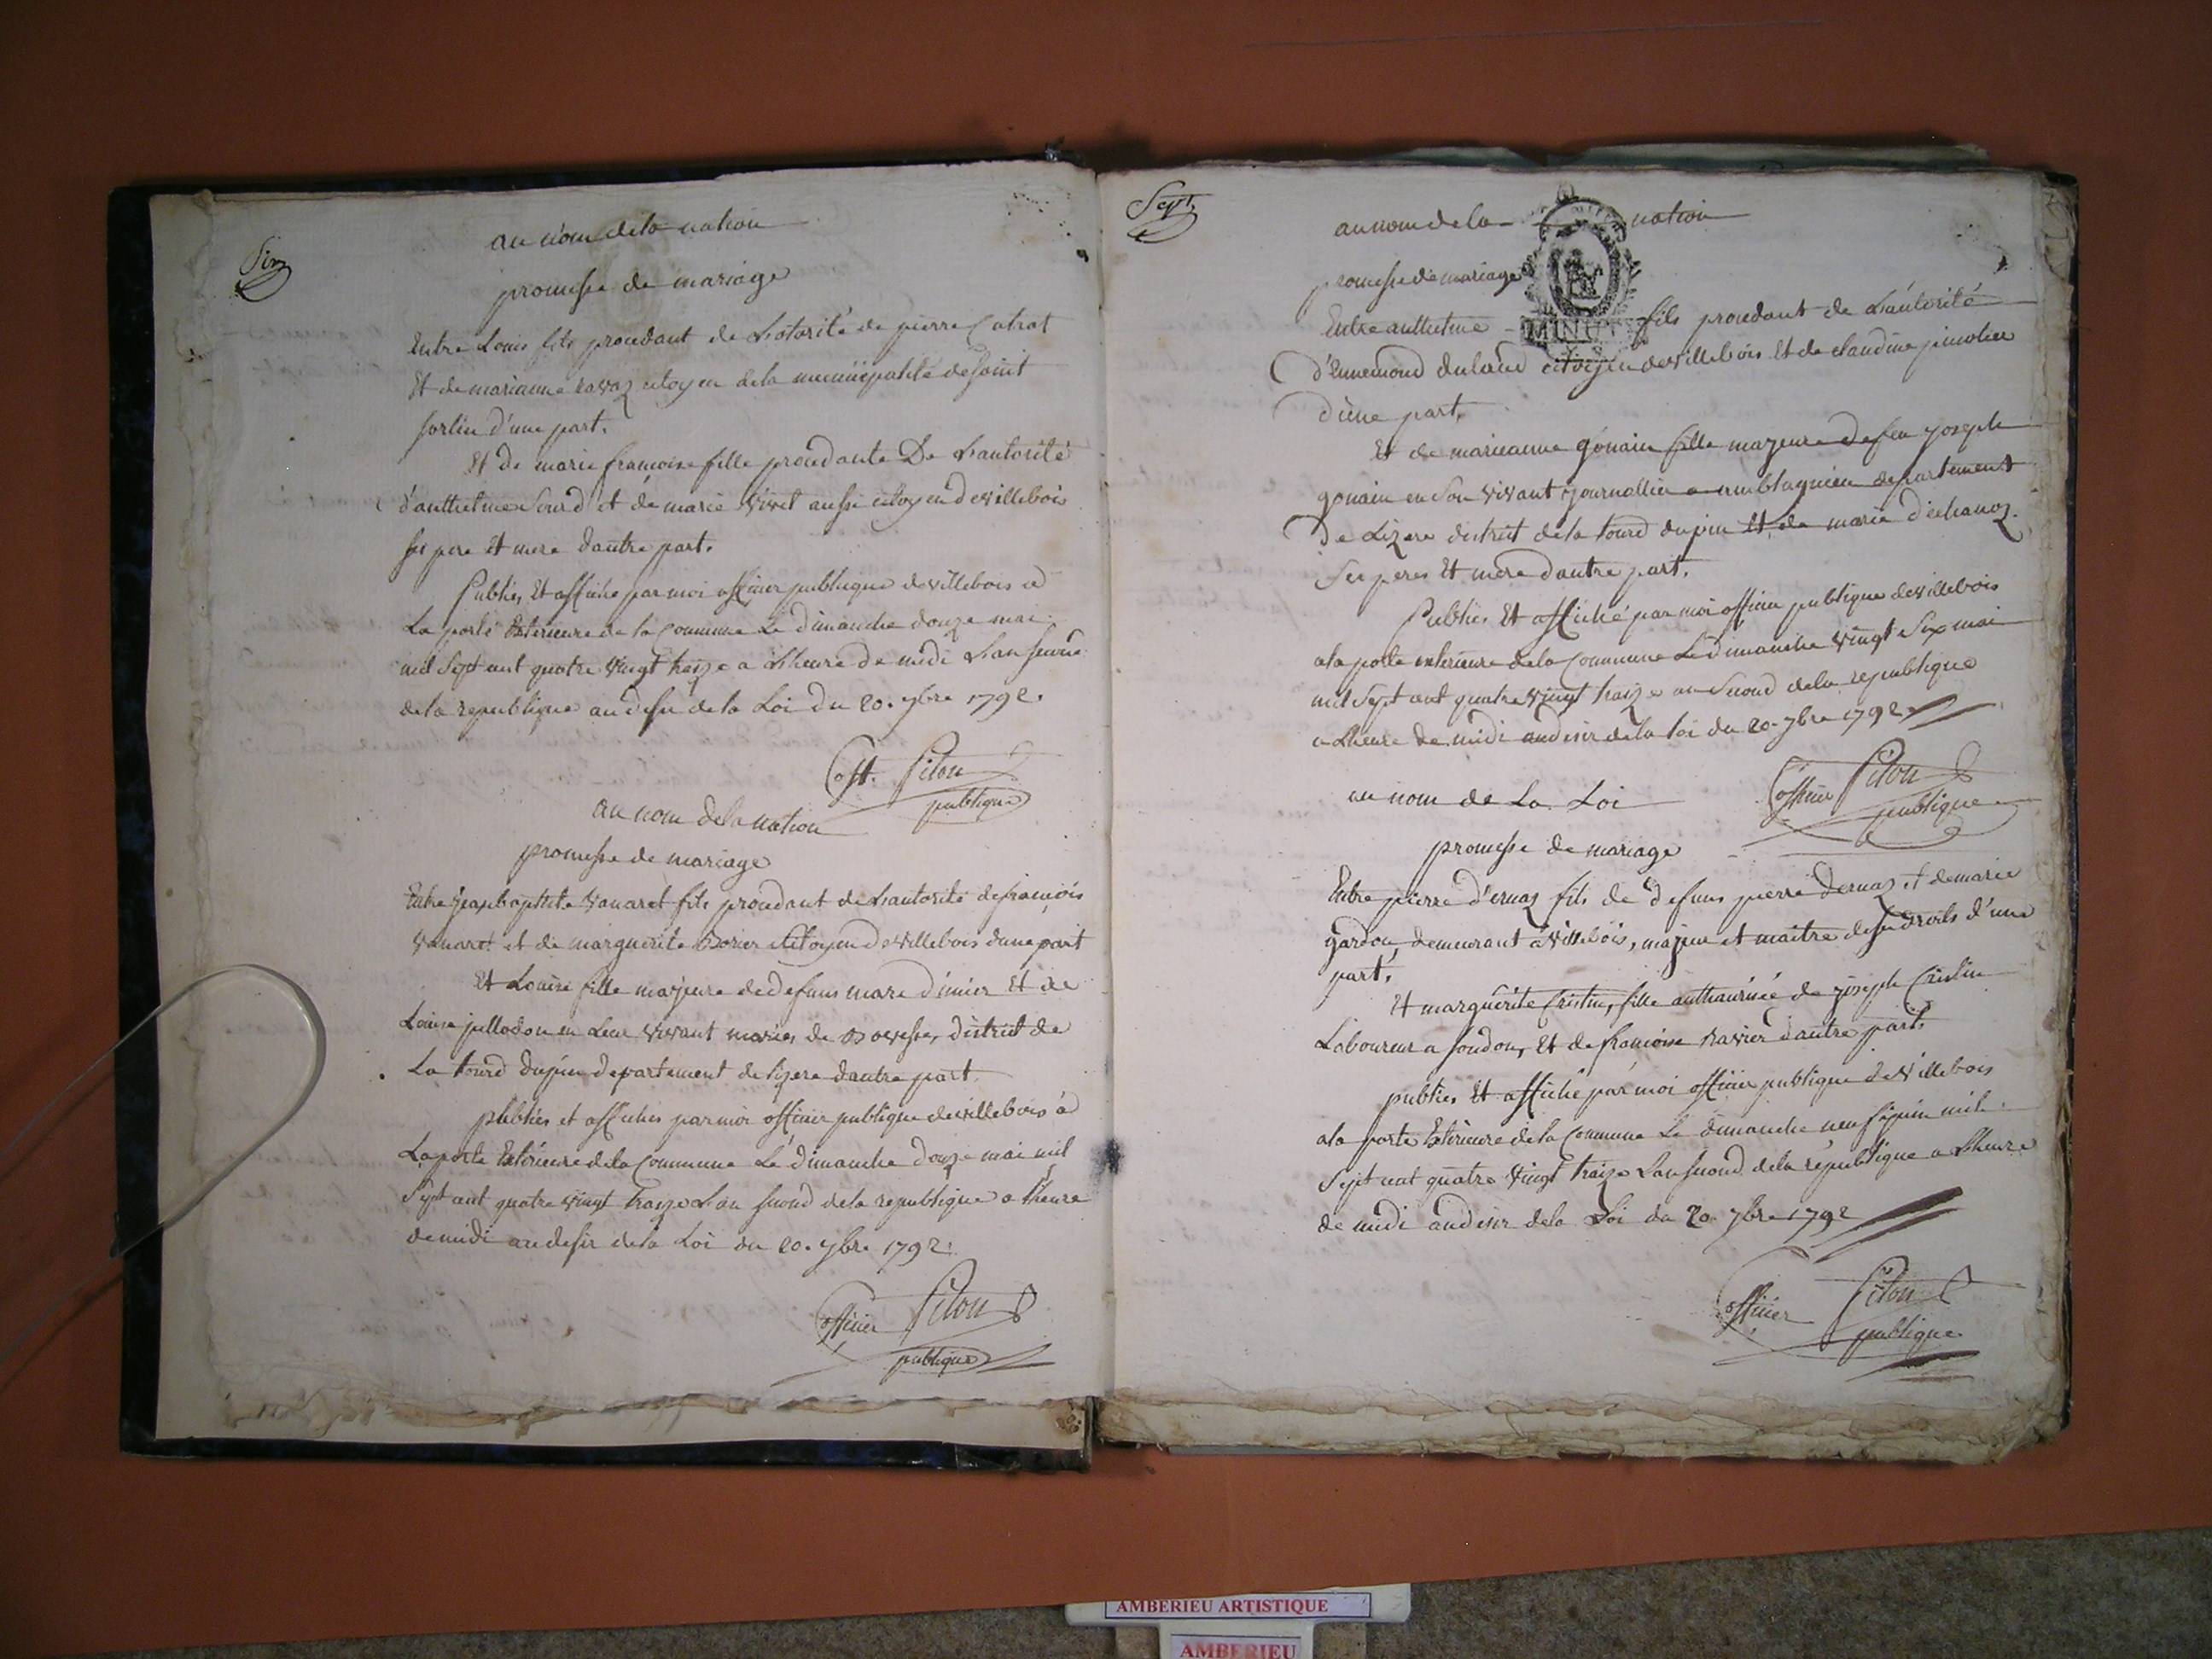 Six
au nom de la nation
promesse de mariage
Entre Louis fils procedant de Lotorité de pierre
Et de marianne ravaz citoyen de la municipalité de Saint
sorlin d'une part.
Et de marie francoise fille procedante De Lautorité
d'anthelme Sourd et de marie Vivet aussi citoyen de villebois
ses pere Et mere dautre part.
Publiés Et affiché par moi officier publique de villebois a
La porte Exterieure de la Commune Le dimanche douze mai
mil Sept cent quatre vingt treize a Lheure de midi Lan second
de la republique au desir de la Loi du 20. 7bre 1792.
off. Pilon
publique
au nom de la nation
promesse de mariage
Entre Jean baptiste Vanaret fils procedant de Lautorité de francois
Vanaret et de marguerite Citoyen de villebois dune part
Et Louise fille majeure de defuns marc d'imier Et de
Louise jullodon en Leur vivant mariés de district de
La tourd dupin departement de lizere dautre part.
publiés et affichés par moi officier publique de villebois a
La porte Extérieure de la Commune Le dimanche douze mai mil
Sept cent quatre vingt treize Lan second de la republique a l'heure
de midi au desir de la Loi du 20. 7bre 1792.
officier Pilon
publique
Sept
au nom de la nation
promesse de mariage
MINUT
Entre anthelme fils procedant de Lautorité
d'Ennemond dulaud citoyen de villebois Et de claudine
d'une part.
Et de marieanne gonain fille majeure de feu joseph
gonain en Son vivant journallier a amblagnieu departement
De Lizere district de la tourd dupin Et de marie
Ses peres Et mere dautre part.
Publiés Et affiché par moi officier publique de villebois
a la porte exterieure de la Commune Le dimanche vingt Six mai
mil Sept cent quatre vingt treize an Second de la republique
a Lheure de midi au desir de la loi du 20. 7bre 1792
officier Pilon
publique
au nom de La Loi
promesse de mariage
Entre pierre d'ernaz fils de defuns pierre dernaz et de marie
gardon, demeurant à villebois, majeur et maitre de ses droits d'une
part.
Et marguerite Cristin, fille de joseph Cristin
Laboureur a soudon, Et de francoise ravier dautre part.
publiés Et affiché par moi officier publique de Villebois
a la porte Extérieure de la Commune Le dimanche neuf juin mil
Sept cent quatre vingt treize Lan second de la république a Lheure
de midi au desir de la Loi du 20. 7bre 1792
officier Pilon
publique
AMBERIEU ARTISTIQUE
AMBERIEU